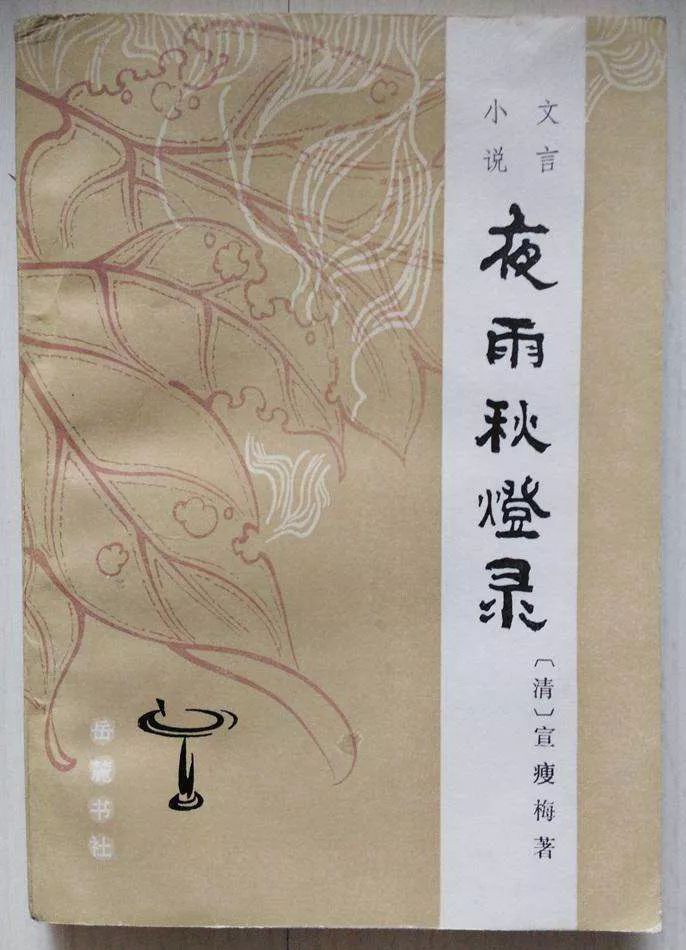 文言
小说
夜雨秋燈录
〔清〕宣瘦梅著
岳麓书社